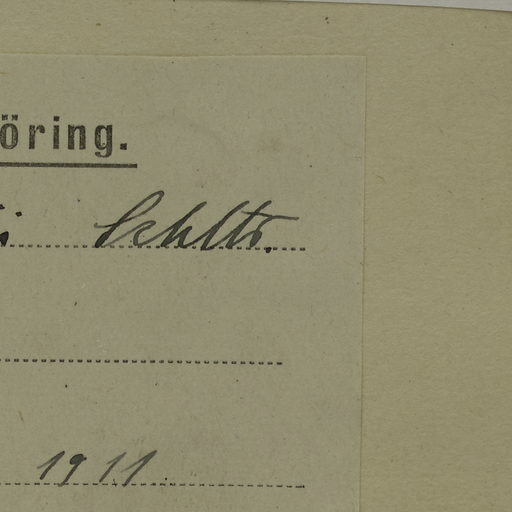 öring.
i Schltr.
1911.